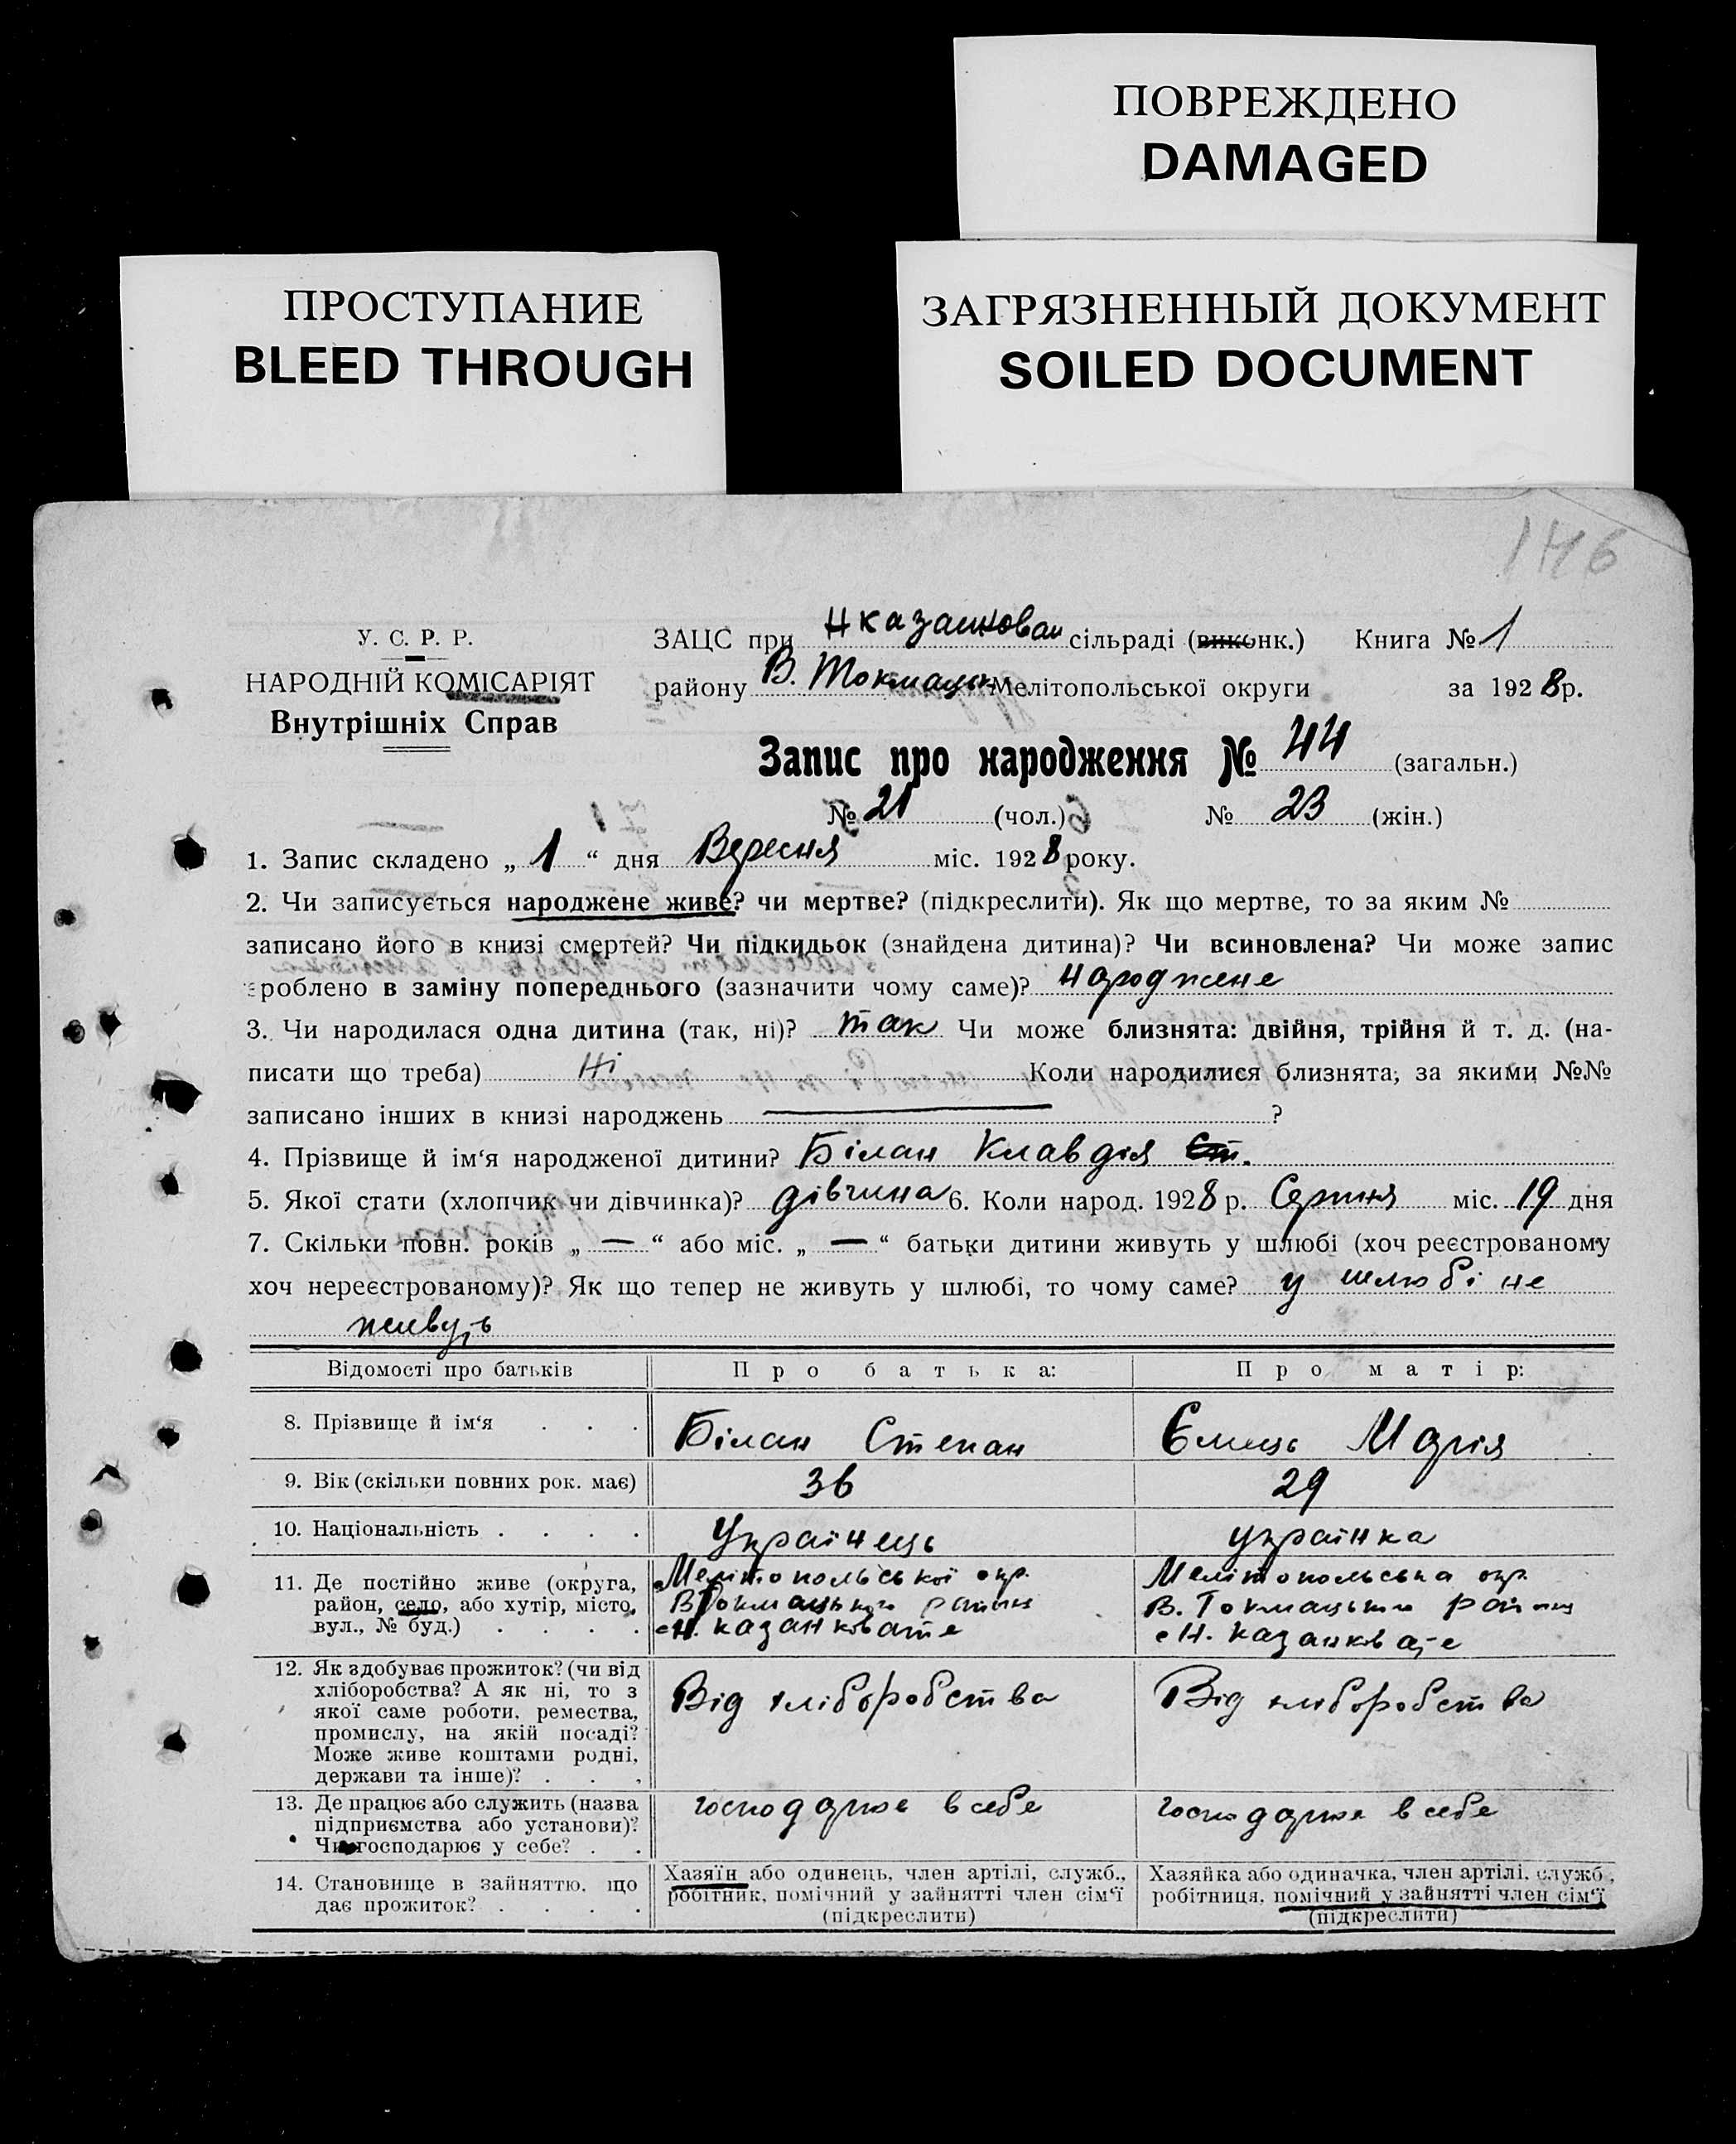 ПОВРЕЖДЕНО
DAMAGED
ПРОСТУПАНИЕ
BLEED THROUGH
ЗАГРЯЗНЕННЫЙ ДОКУМЕНТ
SOILED DOCUMENT
146
У. С. Р. Р.
НАРОДНІЙ КОМІСАРІЯТ
Внутрішніх Справ
ЗАЦС при Н казанковат сільраді (виконк.) Книга № 1
району В. Токмацьк Мелітопольської округи за 1928 р.
Запис про народження № 44 (загальн.)
№ 21 (чол.) № 23 (жін.)
1. Запис складено „ 1 “ дня Вересня міс. 1928 року.
2. Чи записується народжене живе? чи мертве? (підкреслити). Як що мертве, то за яким №
записано його в книзі смертей? Чи підкидьок (знайдена дитина)? Чи всиновлена? Чи може запис
зроблено в заміну попереднього (зазначити чому саме)? народжене
3. Чи народилася одна дитина (так, ні)? так Чи може близнята: двійня, трійня й т. д. (на-
писати що треба) Ні Коли народилися близнята, за якими №№
записано інших в книзі народжень — ?
4. Прізвище й ім‘я народженої дитини? Білан Клавдія Ст.
5. Якої стати (хлопчик чи дівчинка)? дівчина 6. Коли народ. 1928 р. Серпня міс. 19 дня
7. Скільки повн. років „ — “ або міс. „ — “ батьки дитини живуть у шлюбі (хоч реєстрованому
хоч нереєстрованому)? Як що тепер не живуть у шлюбі, то чому саме? у шлюбі не
живуть
Відомості про батьків Про батька: Про матір:
8. Прізвище й ім‘я . . . Білан Степан Ємець Марія
9. Вік (скільки повних рок. має) 36 29
10. Національність . . . . Українець українка
11. Де постійно живе (округа,
район, село, або хутір, місто,
вул., № буд.) . . . .
Мелітопольської окр.
В Токмацького район
с Н. казанковате
Мелітопольська окр.
В. Токмацького район
с Н. казанковате
12. Як здобуває прожиток? (чи від
хліборобства? А як ні, то з
якої саме роботи, ремества,
промислу, на якій посаді?
Може живе коштами родні,
держави та інше)? . . .
Від хліборобства
Від хліборобства
13. Де працює або служить (назва
підприємства або установи)?
Чи господарює у себе? . .
господарює в себе
господарює в себе
14. Становище в зайняттю, що
дає прожиток? . . . .
Хазяїн або одинець, член артілі, служб.,
робітник, помічний у зайнятті член сім‘ї
(підкреслити)
Хазяйка або одиначка, член артілі, служб.,
робітниця, помічний у зайнятті член сім‘ї
(підкреслити)